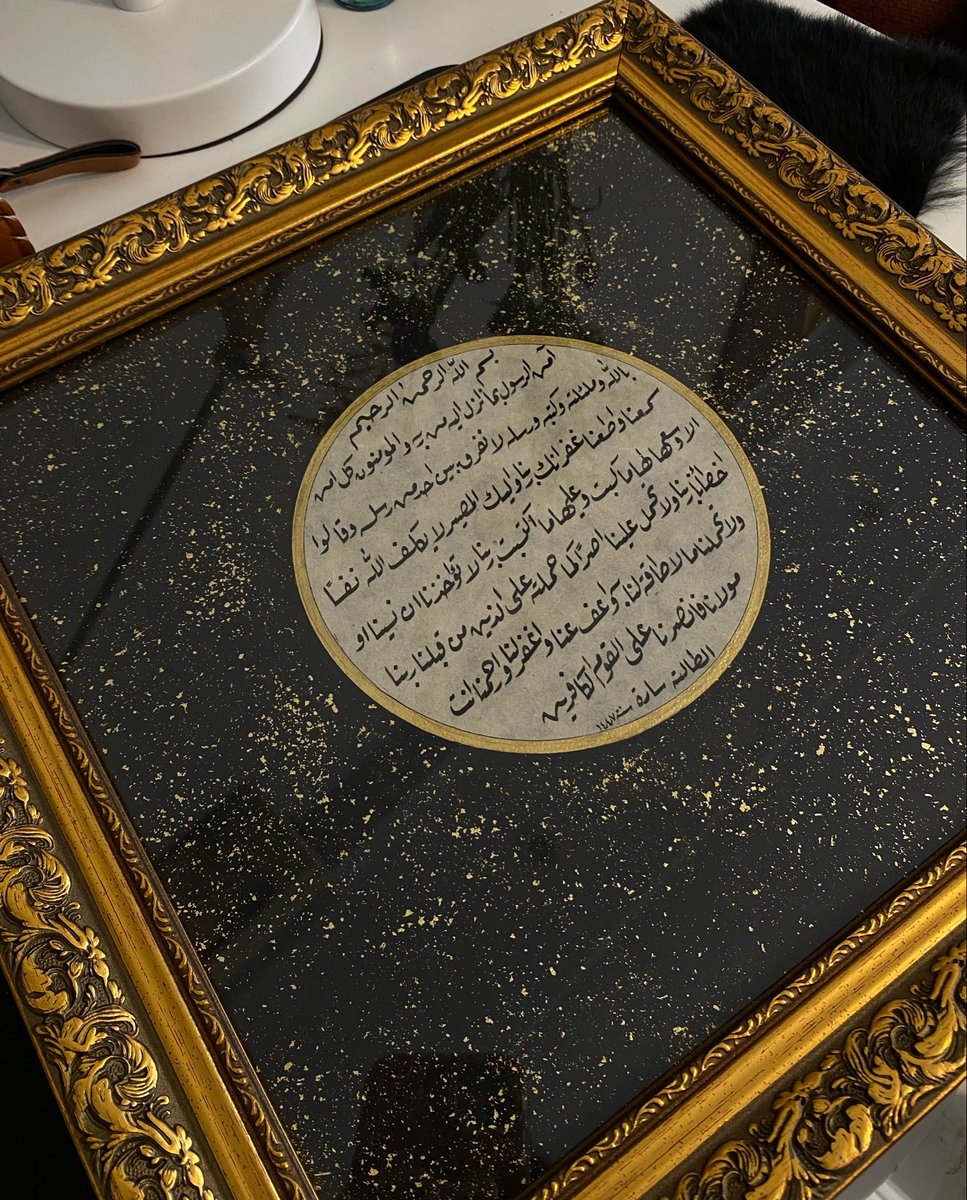 بسم الله الرحمن الرحيم
آمن الرسول بما أنزل اليه من ربه والمؤمنون كل امن
بالله وملئكته وكتبه ورسله لا نفرق بين احد من رسله وقالوا
سمعنا وطعنا غفرانك ربنا وليك المصير لا يكلف الله نفسًا
الا وسعها لها ما كسبت وعليها ما اكتسبت ربنا لا تؤاخذنا ان نسينا او
اخطأنا ربنا ولا تحمل علينا اصرًا كما حملته على الذين من قبلنا ربنا
ولا تحملنا ما لا طاقة لنا به واعف عنا واغفر لنا وارحمنا انت
مولانا فانصرنا على القوم الكافرين
الطالبة سارة سنة ١٤٤٧